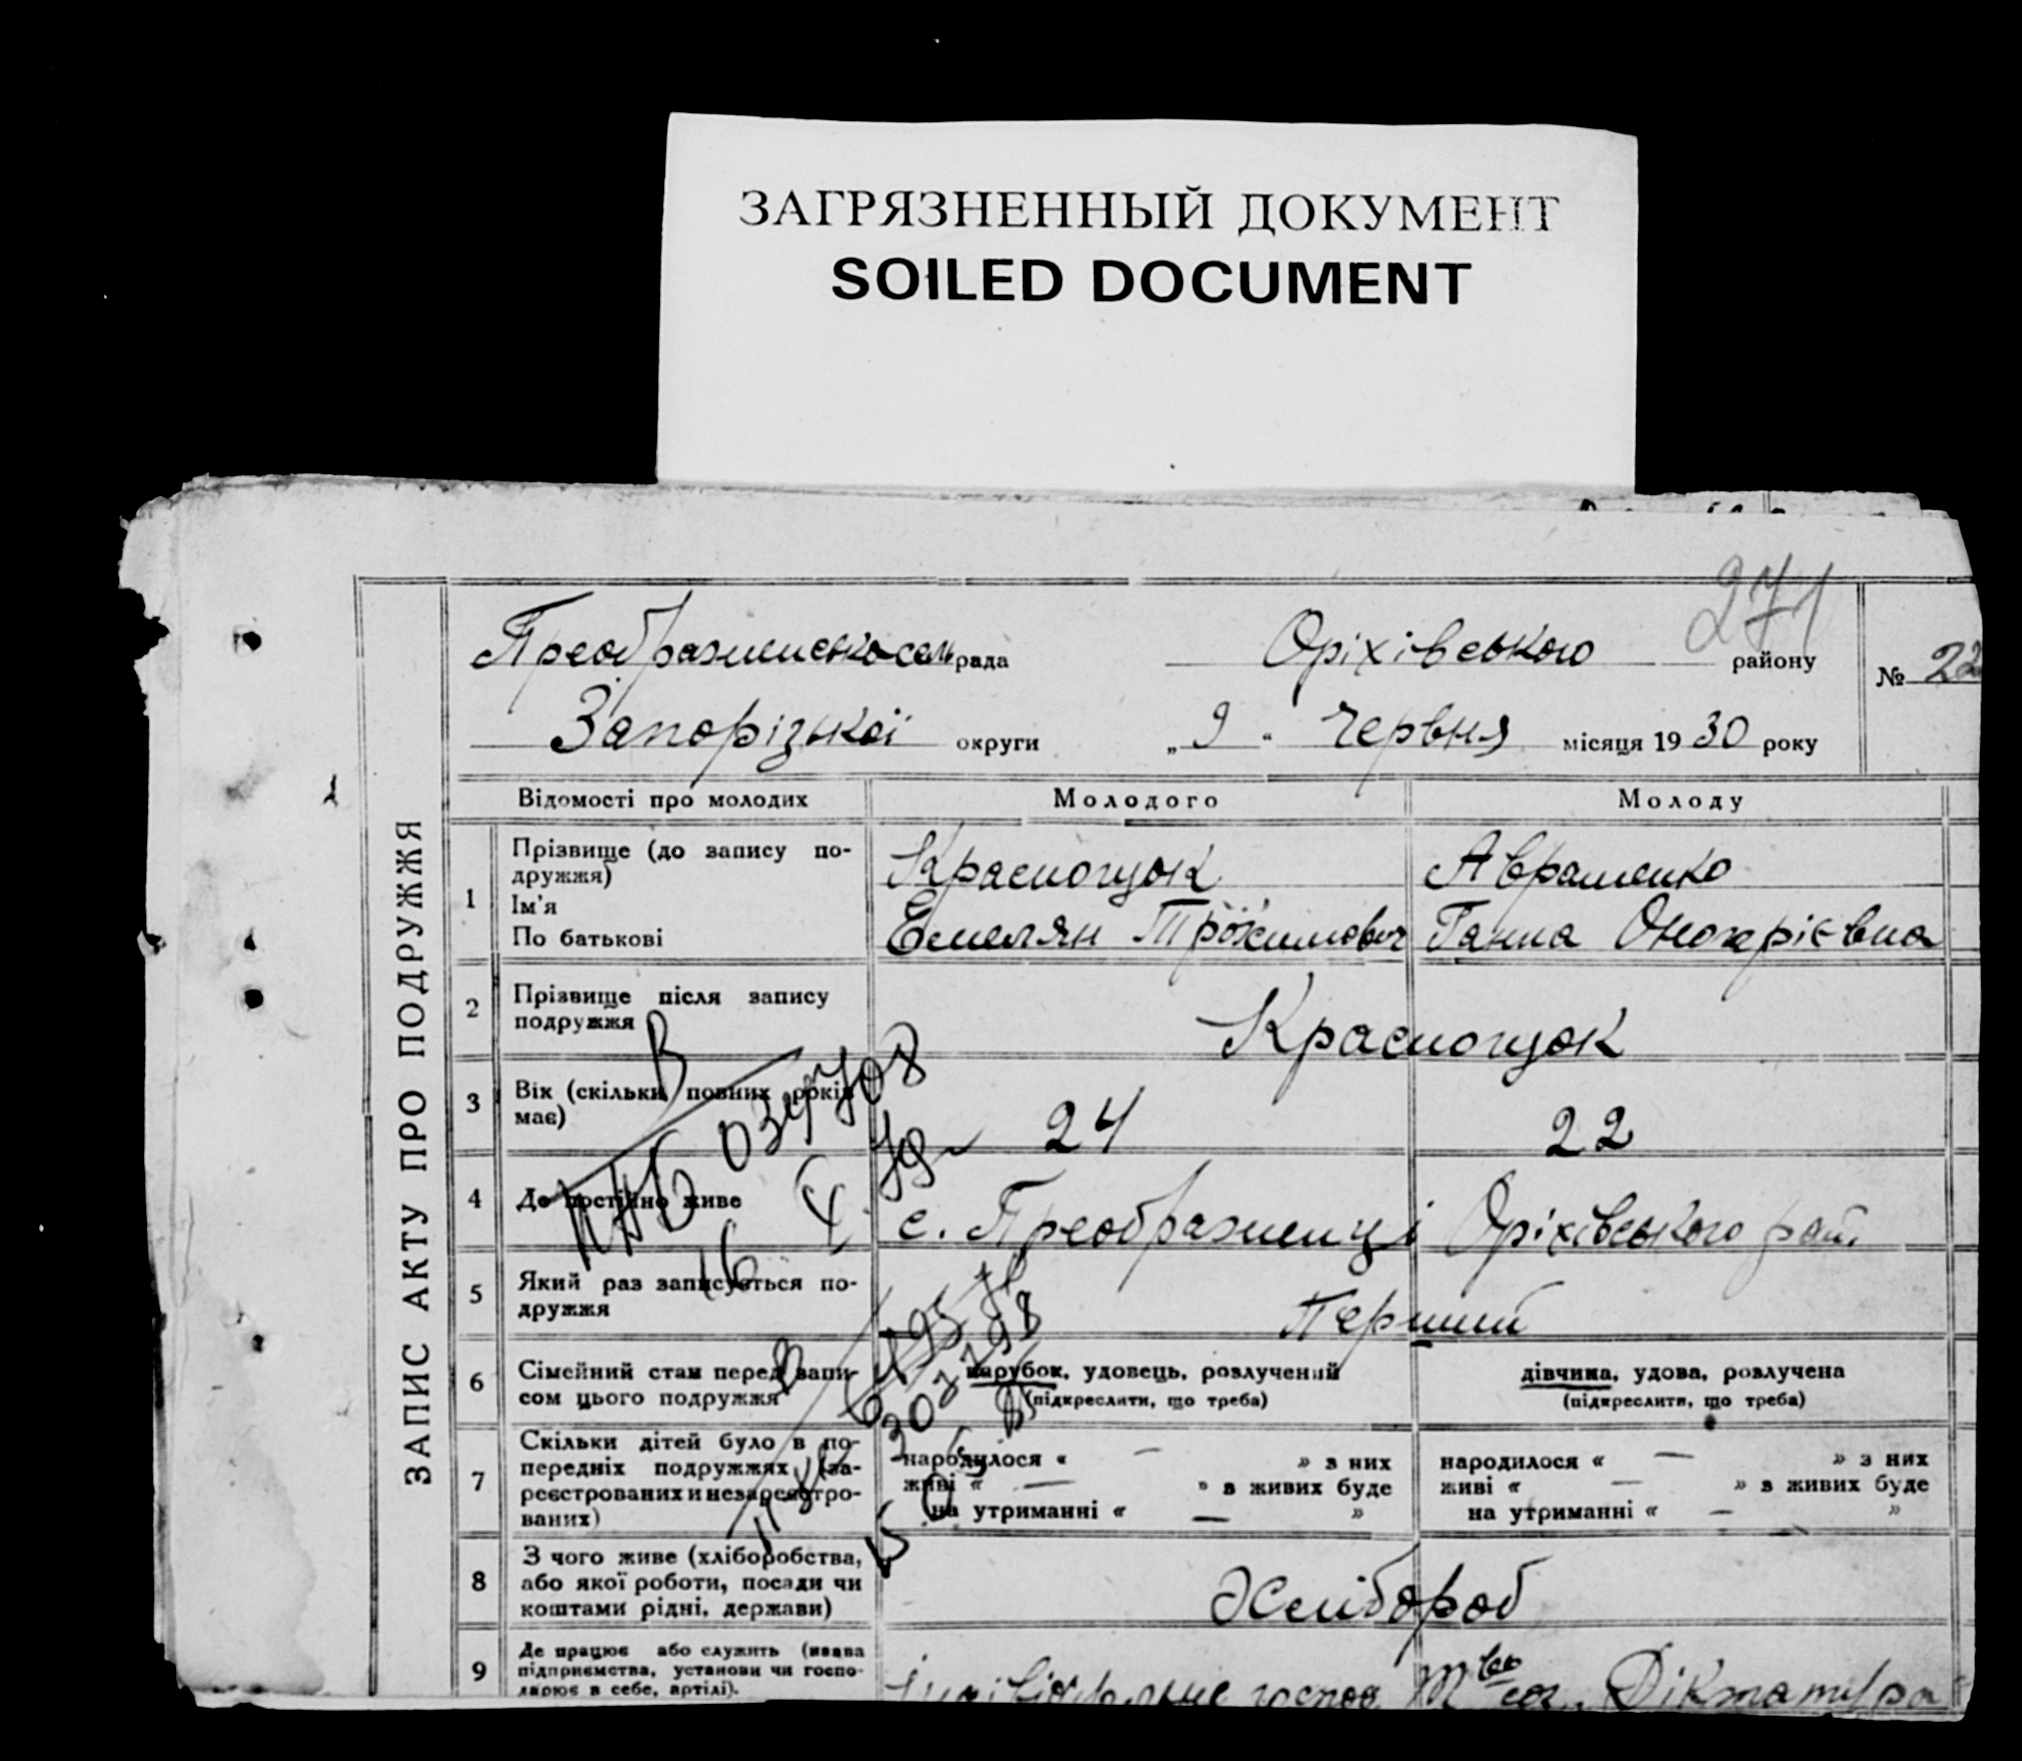 ЗАГРЯЗНЕННЫЙ ДОКУМЕНТ
SOILED DOCUMENT
271
рада Оріхівського району № 22
Запорізької округи „ 9 “ Червня місяця 1930 року
ЗАПИС АКТУ ПРО ПОДРУЖЖЯ
Відомості про молодих Молодого Молоду
1 Прізвище (до запису по-
дружжя)
Ім'я
По батькові
Красногуок Авраменко
Емелян Трохимович Ганна Онохрієвна
2 Прізвище після запису
подружжя
Красногуок
3 Вік (скільки повних років
має)
24 22
4 Де постійно живе
с. Преображенці Оріхівського рай.
5 Який раз записується по-
дружжя
Перший
6 Сімейний стан перед запи-
сом цього подружжя
парубок, удовець, розлучений
(підкреслити, що треба)
дівчина, удова, розлучена
(підкреслити, що треба)
7 Скільки дітей було в по-
передніх подружжях (за-
реєстрованих и незареєстро-
ваних)
народилося « — » з них
живі « — » в живих буде
на утриманні « — »
народилося « — » з них
живі « — » в живих буде
на утриманні « — »
8 З чого живе (хліборобства,
або якої роботи, посади чи
коштами рідні, держави)
Хлібороб
9 Де працює або служить (назва
підприємства, установи чи госпо-
дарює в себе, артілі).
Діктатура